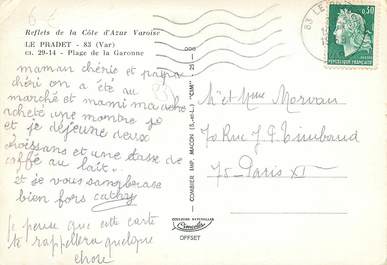 Reflets de la Côte d'Azur Varoise
LE PRADET - 83 (Var)
ex. 29-14 - Plage de la Garonne
maman chérie et papa
chéri on a été au
marché et mami m'a
cheté une montre
et je déjeune deux
croissans et une tasse de
caffé au lait..
et je vous
bien fors cathy
je pense que cette carte
te rappellera quelque
chose
COMBIER IMP. MACON (S.-et-L.) "CIM"
COULEURS NATURELLES
OFFSET
83 LE
0,30
REPUBLIQUE FRANÇAISE
M et Mme Morvan
70 Rue J P Timbaud
75 - Paris XI